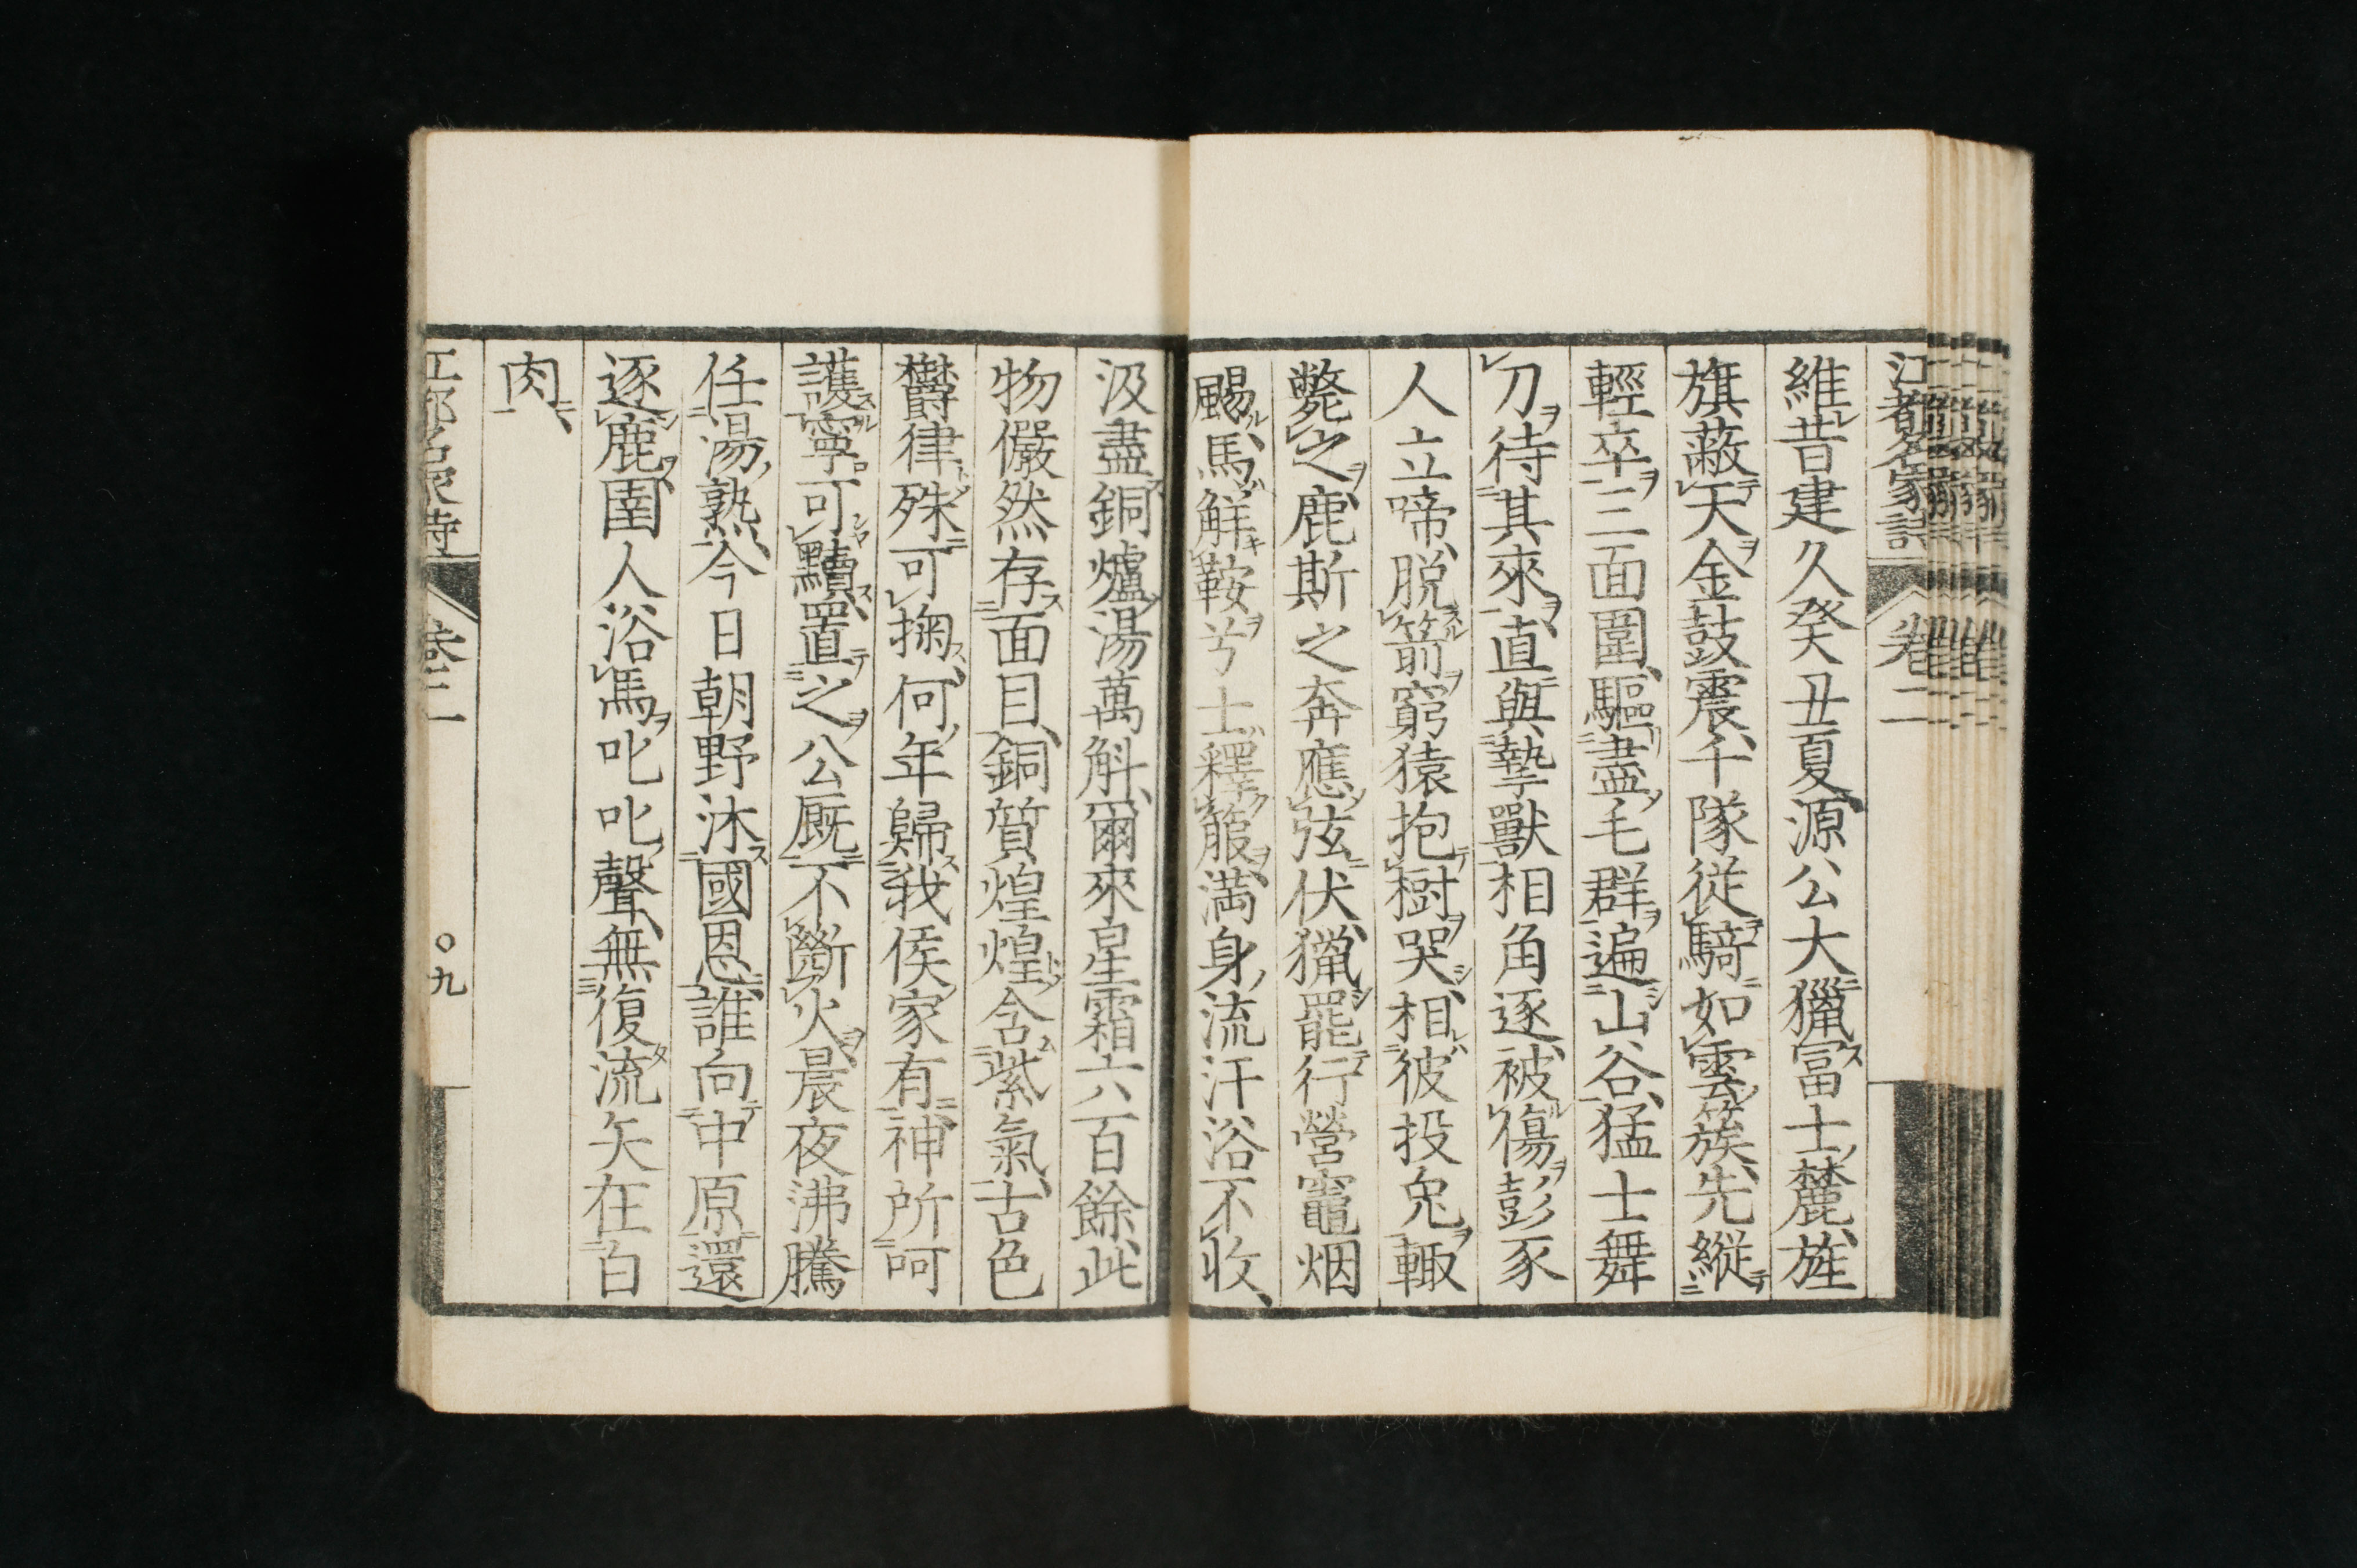 江都名家詩 卷二
維昔建久癸丑夏源公大獵富士麓旌
旗蔽天金鼓震千隊從騎如雲簇先縱
輕卒三面圍驅盡毛群遍山谷猛士舞
刀待其來直與摯獸相角逐被傷彭豕
人立啼脱箭窮猿抱樹哭相彼投兔輙
斃之鹿斯之奔應弦伏獵罷行營竈烟
颺馬觧鞍兮士釋箙満身流汗浴不收
汲盡銅爐湯萬斛爾來星霜六百餘此
物儼然存面目銅質煌煌含紫氣古色
鬱律殊可掬何年歸我侯家有神所呵
護寧可黷置之公厩不斷火晨夜沸騰
任湯熟今日朝野沐國恩誰向中原還
逐鹿圉人浴馬叱叱聲無復流矢在白
肉
卷二 九